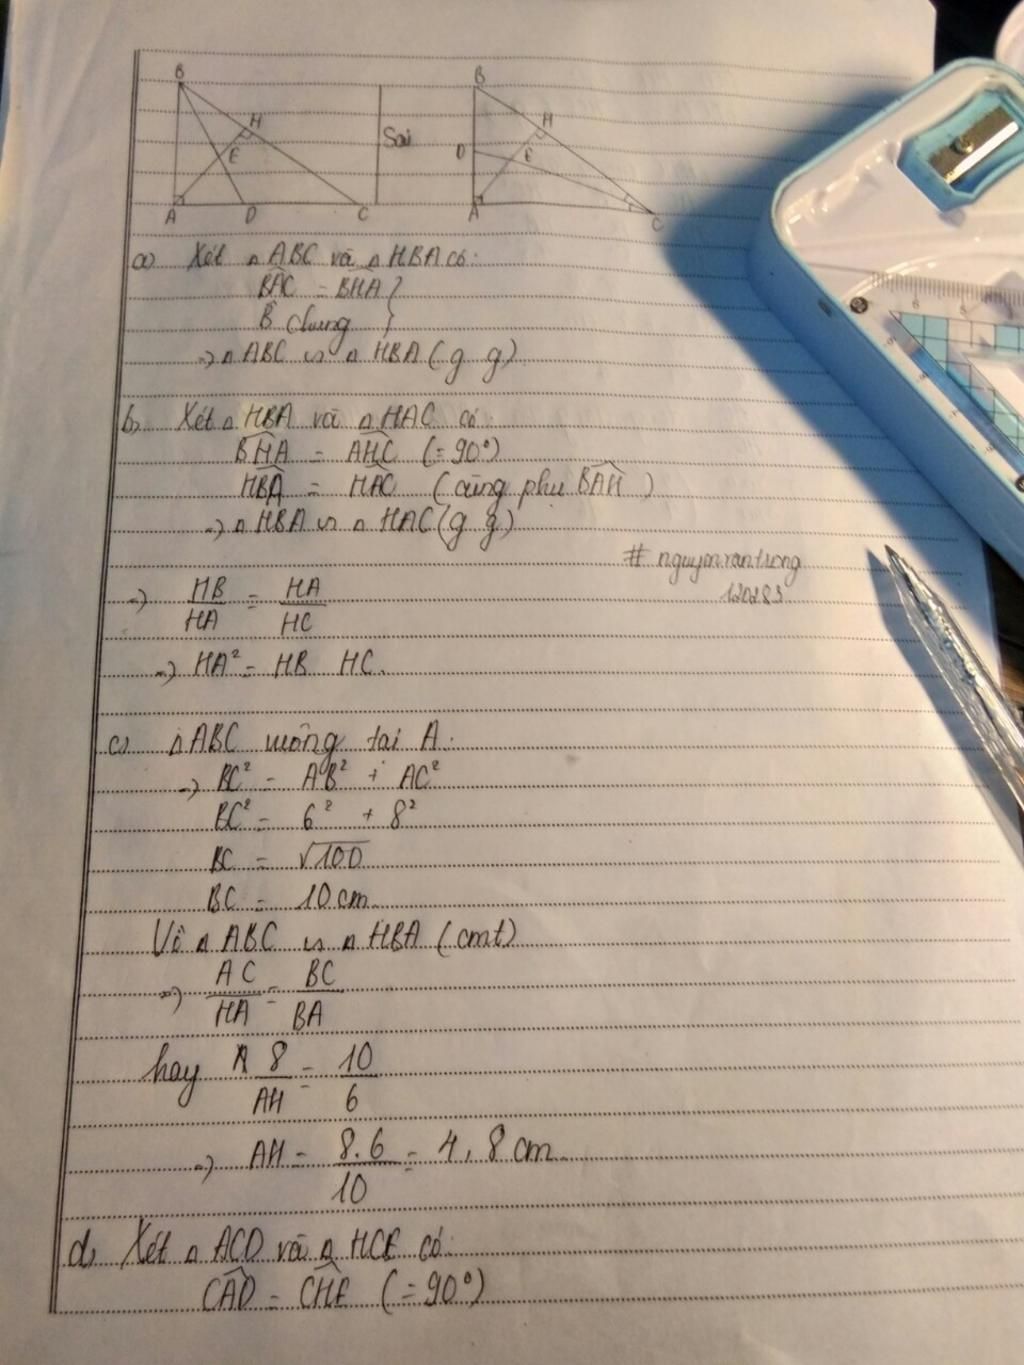 B
H
E
A D C
Sai
B
H
D E
A C
a) Xét △ABC và △HBA có:
BAC = BHA }
B chung
=> △ABC ∽ △HBA (g g)
b) Xét △HBA và △HAC có
BHA = AHC (= 90°)
HBA = HAC (cùng phụ BAH)
=> △HBA ∽ △HAC (g g)
# nguyenvantrong
120283
=> HB/HA = HA/HC
=> HA² = HB HC.
c) △ABC vuông tại A.
=> BC² = AB² + AC²
BC² = 6² + 8²
BC = √100
BC = 10 cm
Vì △ABC ∽ △HBA (cmt)
=> AC/HA = BC/BA
hay 8/AH = 10/6
=> AH = 8.6/10 = 4,8 cm.
d) Xét △ACD và △HCE có:
CAD = CHE (= 90°)